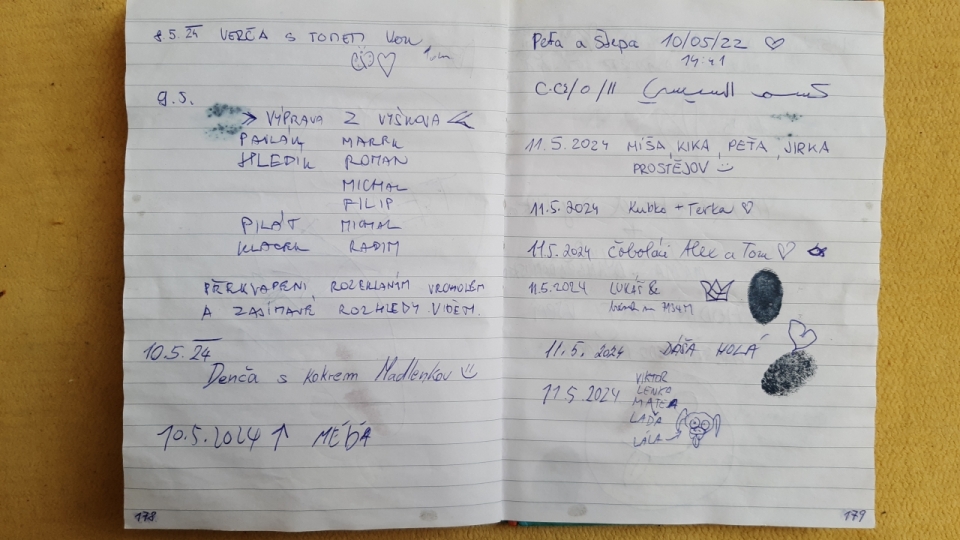 8.5.24 VERČA S TOMEM
9.5.
VÝPRAVA Z VYŠKOVA
PAVLÁK MAREK
HLEDIK ROMAN
MICHAL
FILIP
PILÁT MICHAL
KLACEK RADIM
PŘEKVAPENI ROZEKLANÍM VRCHOLEM
A ZAJÍMAVÉ ROZHLEDY VIDĚM.
10.5.24
Denča s kokrem Madlenkou
10.5.2024 ↑ MÉĎA
178
Peťa a Štěpa 10/05/22 ♡
14:41
11.5.2024 MÍŠA, KIKA, PEŤA, JIRKA
PROSTĚJOV
11.5.2024 Kubko + Terka ♡
11.5.2024 Čoboláci Alex a Tom ♡
11.5.2024 LUKÁŠ
11.5.2024 DÁŠA HOLÁ
11.5.2024 VIKTOR
LENKO
MATEJ
LAĎA
LÁLA
179